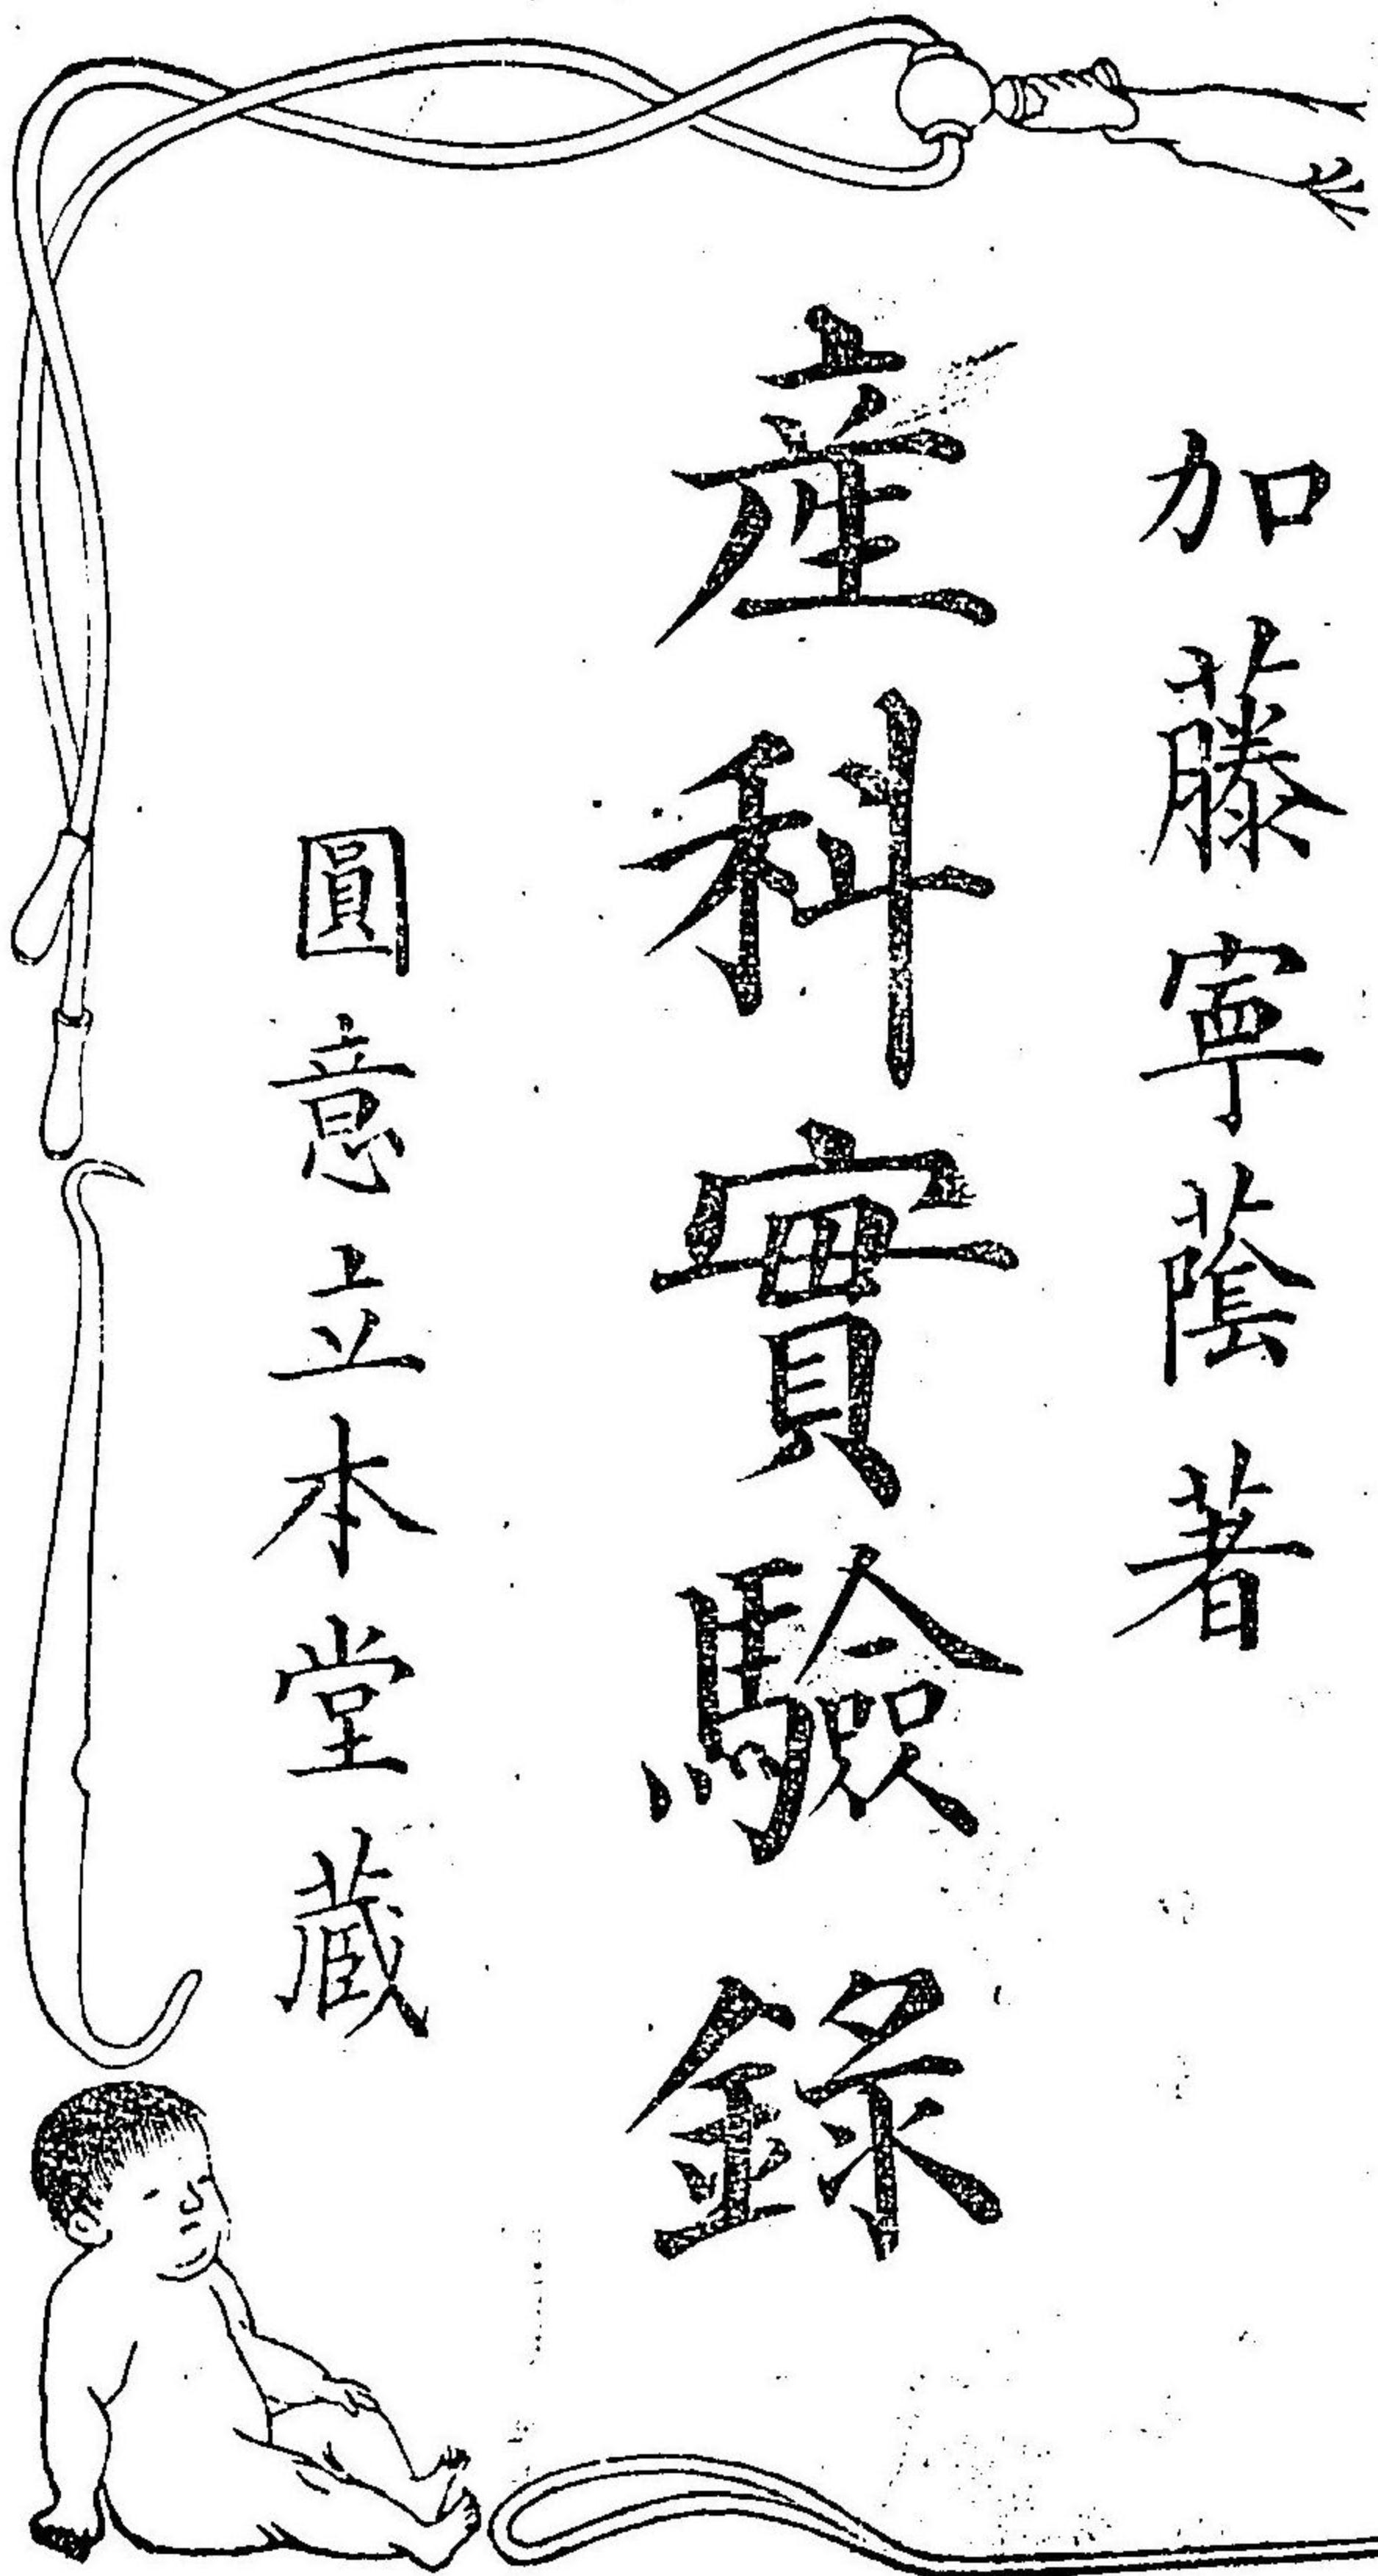 加藤寧蔭著
産科實驗錄
圓意立本堂藏